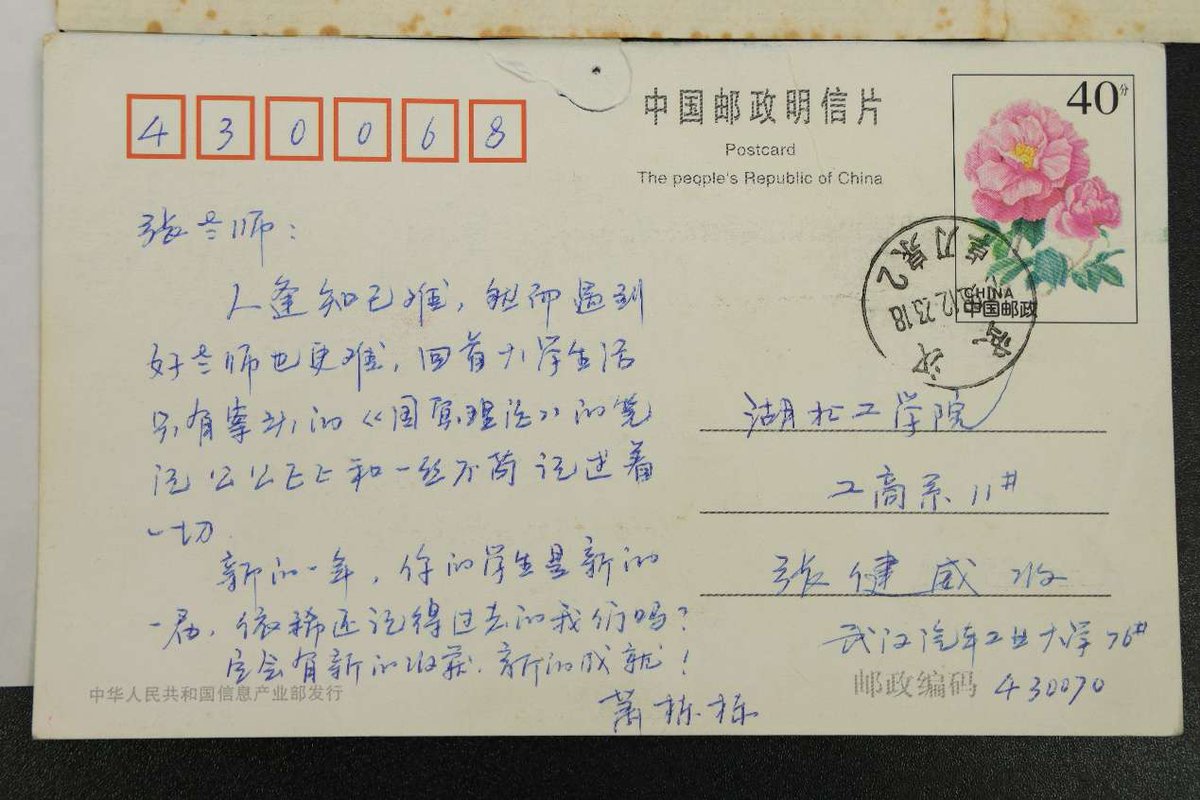 430068
中国邮政明信片
Postcard
The people's Republic of China
40分
CHINA
中国邮政
张老师:
人逢知己难,然而遇到
好老师也更难,回首大学生活
只有寥寥的《国原理法》的笔
记公公正正和一丝不苟记述着
一切.
新的一年,你的学生是新的
一届,依稀还记得过去的我们吗?
定会有新的收获.新的成就!
萧栋栋
湖北工学院
工商系11#
张健威 收
武汉汽车工业大学76#
邮政编码 430070
中华人民共和国信息产业部发行